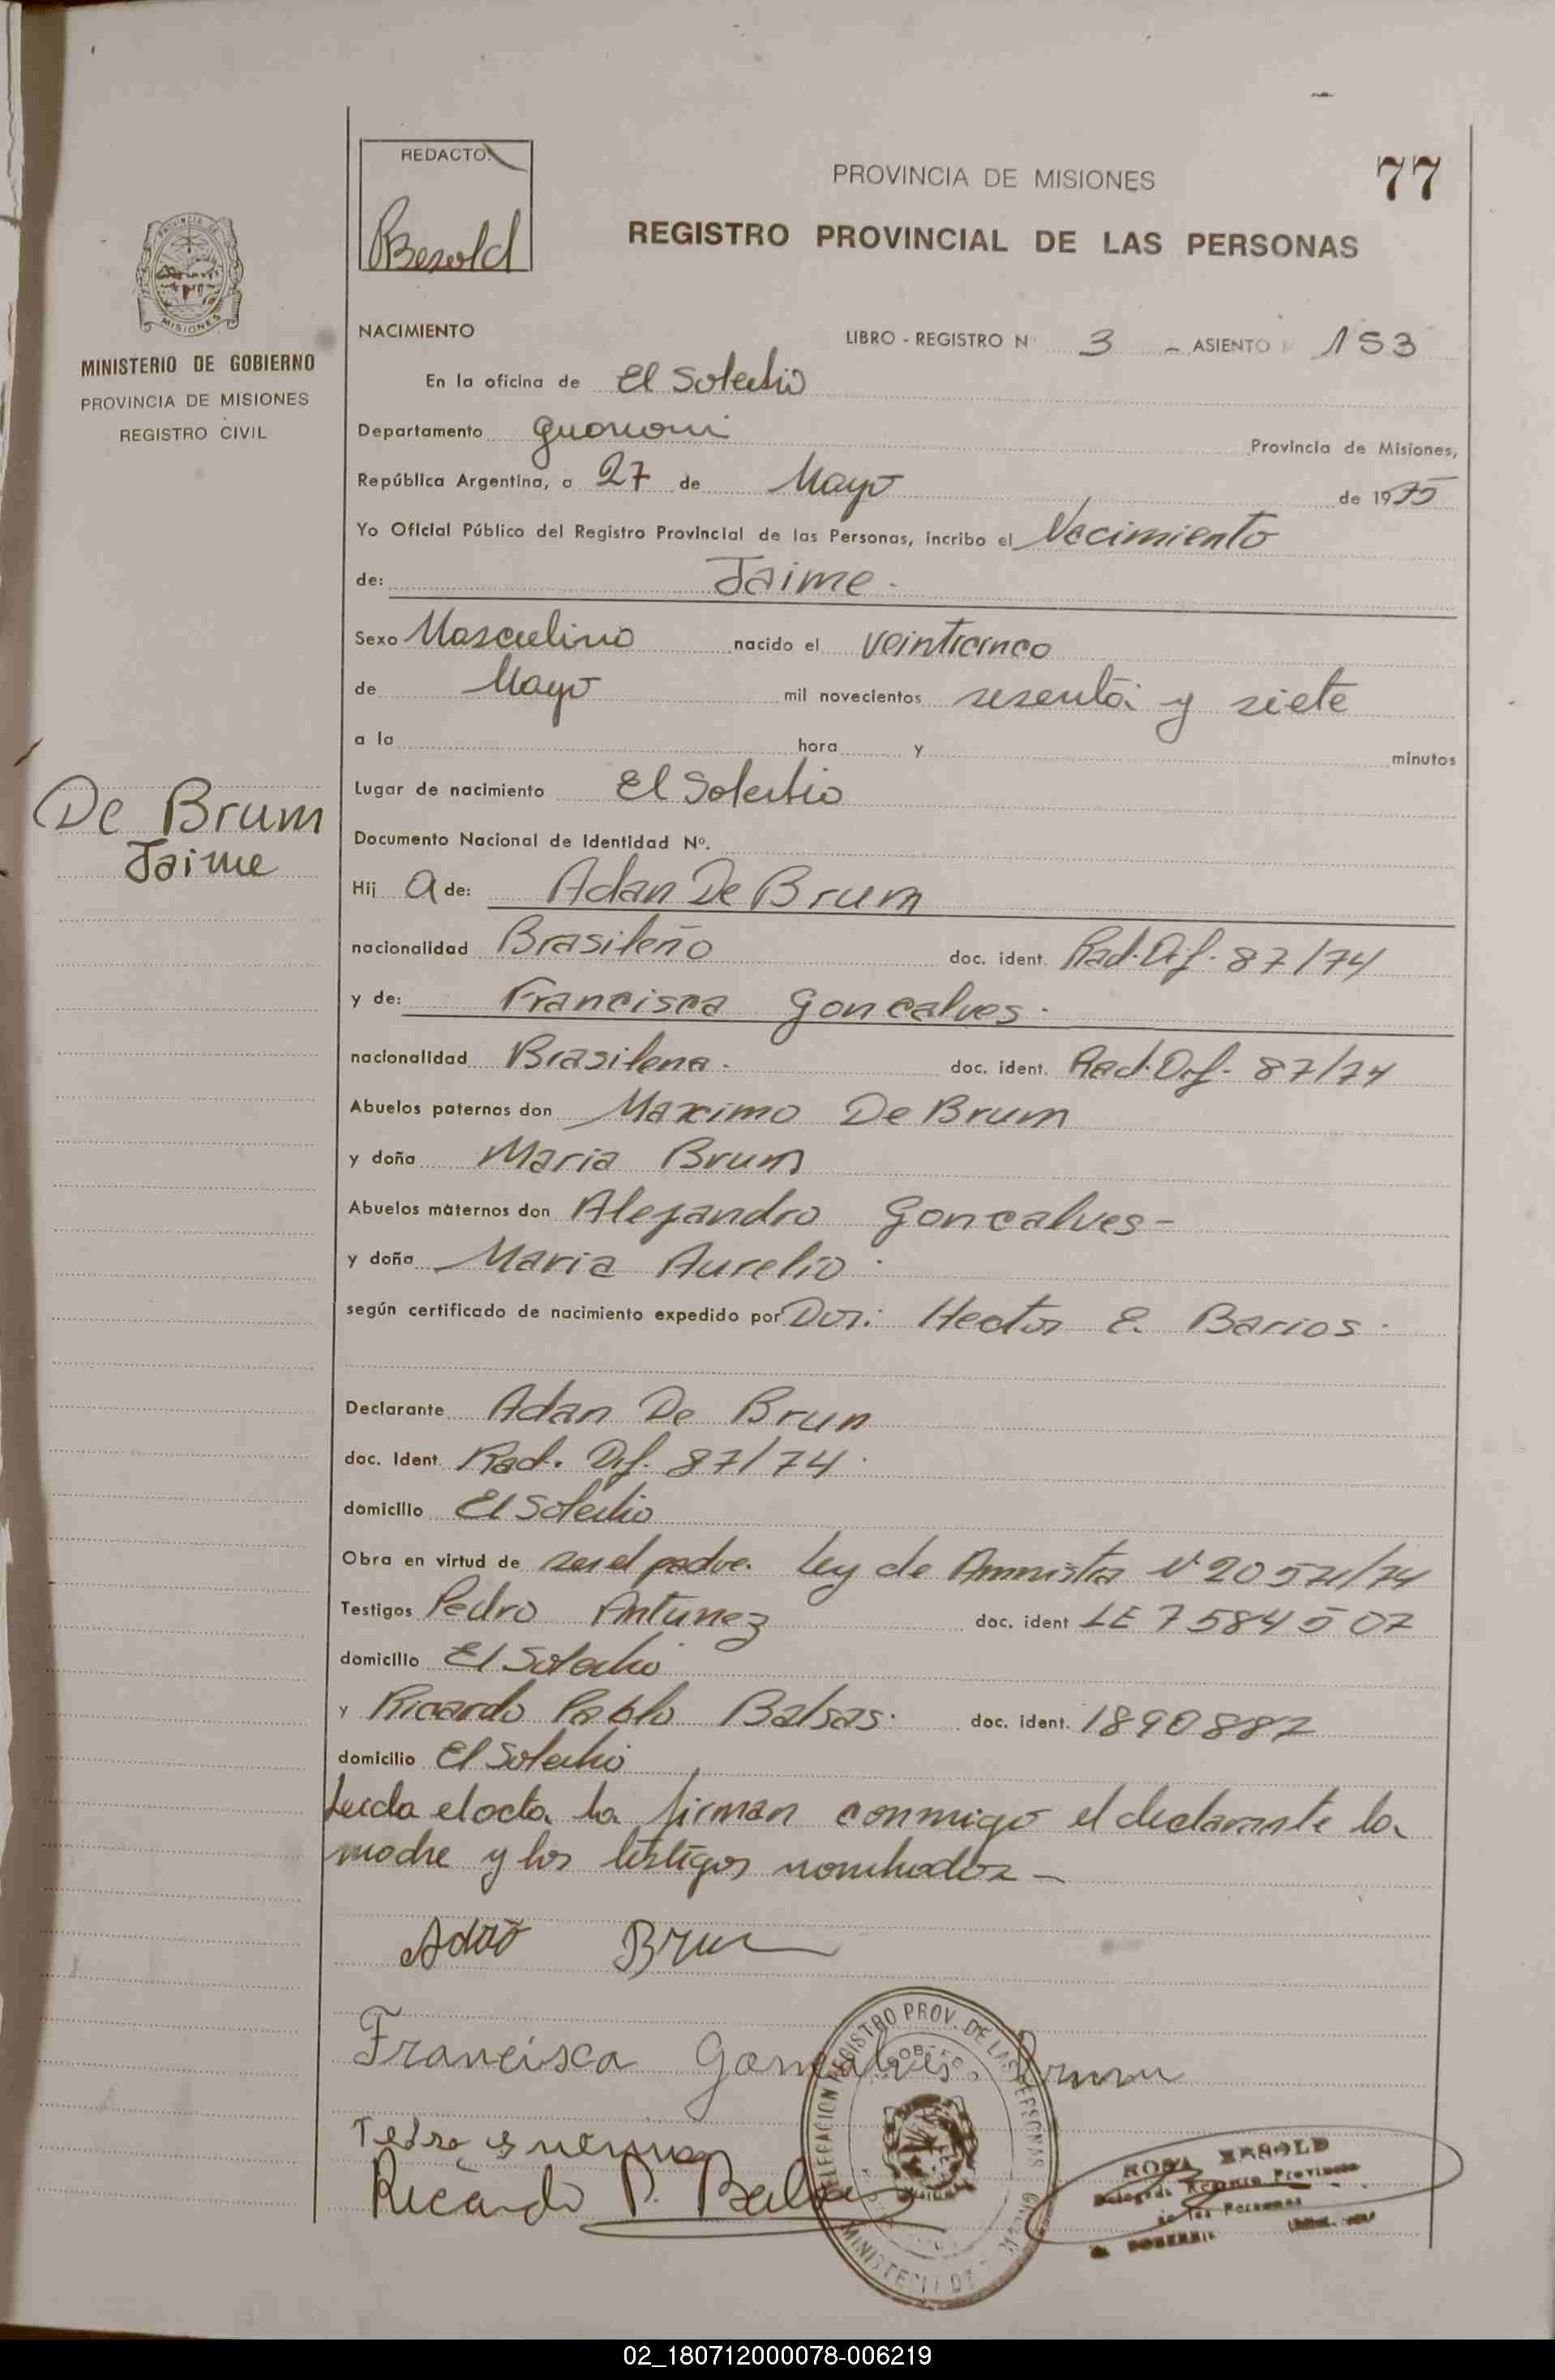 REDACTO:
Besold
PROVINCIA DE MISIONES
77
REGISTRO PROVINCIAL DE LAS PERSONAS
MISIONES
MINISTERIO DE GOBIERNO
PROVINCIA DE MISIONES
REGISTRO CIVIL
NACIMIENTO
LIBRO - REGISTRO N 3 - ASIENTO 153
En la oficina de El Soberbio
Departamento Guarani Provincia de Misiones,
República Argentina, a 27 de Mayo de 1975
Yo Oficial Público del Registro Provincial de las Personas, incribo el Nacimiento
de: Jaime.
Sexo Masculino nacido el veinticinco
de Mayo mil novecientos sesenta y siete
a la hora y minutos
Lugar de nacimiento El Soberbio
De Brum
Jaime
Documento Nacional de Identidad Nº.
Hij o de: Adan De Brum
nacionalidad Brasileño doc. ident. Rad. Dif. 87/74
y de: Francisca Goncalves.
nacionalidad Brasilena. doc. ident. Rad. Dif. 87/74
Abuelos paternos don Maximo De Brum
y doña Maria Brum
Abuelos maternos don Alejandro Goncalves-
y doña Maria Aurelio.
según certificado de nacimiento expedido por Dor: Hector E. Barios.
Declarante Adan De Brun
doc. Ident. Rad. Dif. 87/74.
domicilio El Soberbio
Obra en virtud de ser el padre. Ley de Amnistia Nº 20571/74
Testigos Pedro Antunez doc. ident LE 7584507
domicilio El Soberbio
y Ricardo Pablo Balsas. doc. ident. 1890887
domicilio El Soberbio
Leida el acta la firman conmigo el declarante la
madre y los testigos nombrados -
Adão Brum
Francisca Goncalves Brum
Ricardo P.
REGISTRO PROV. DE LAS PERSONAS
ROSA BESOLD
Delegada Registro Provincial
de las Personas
02_180712000078-006219